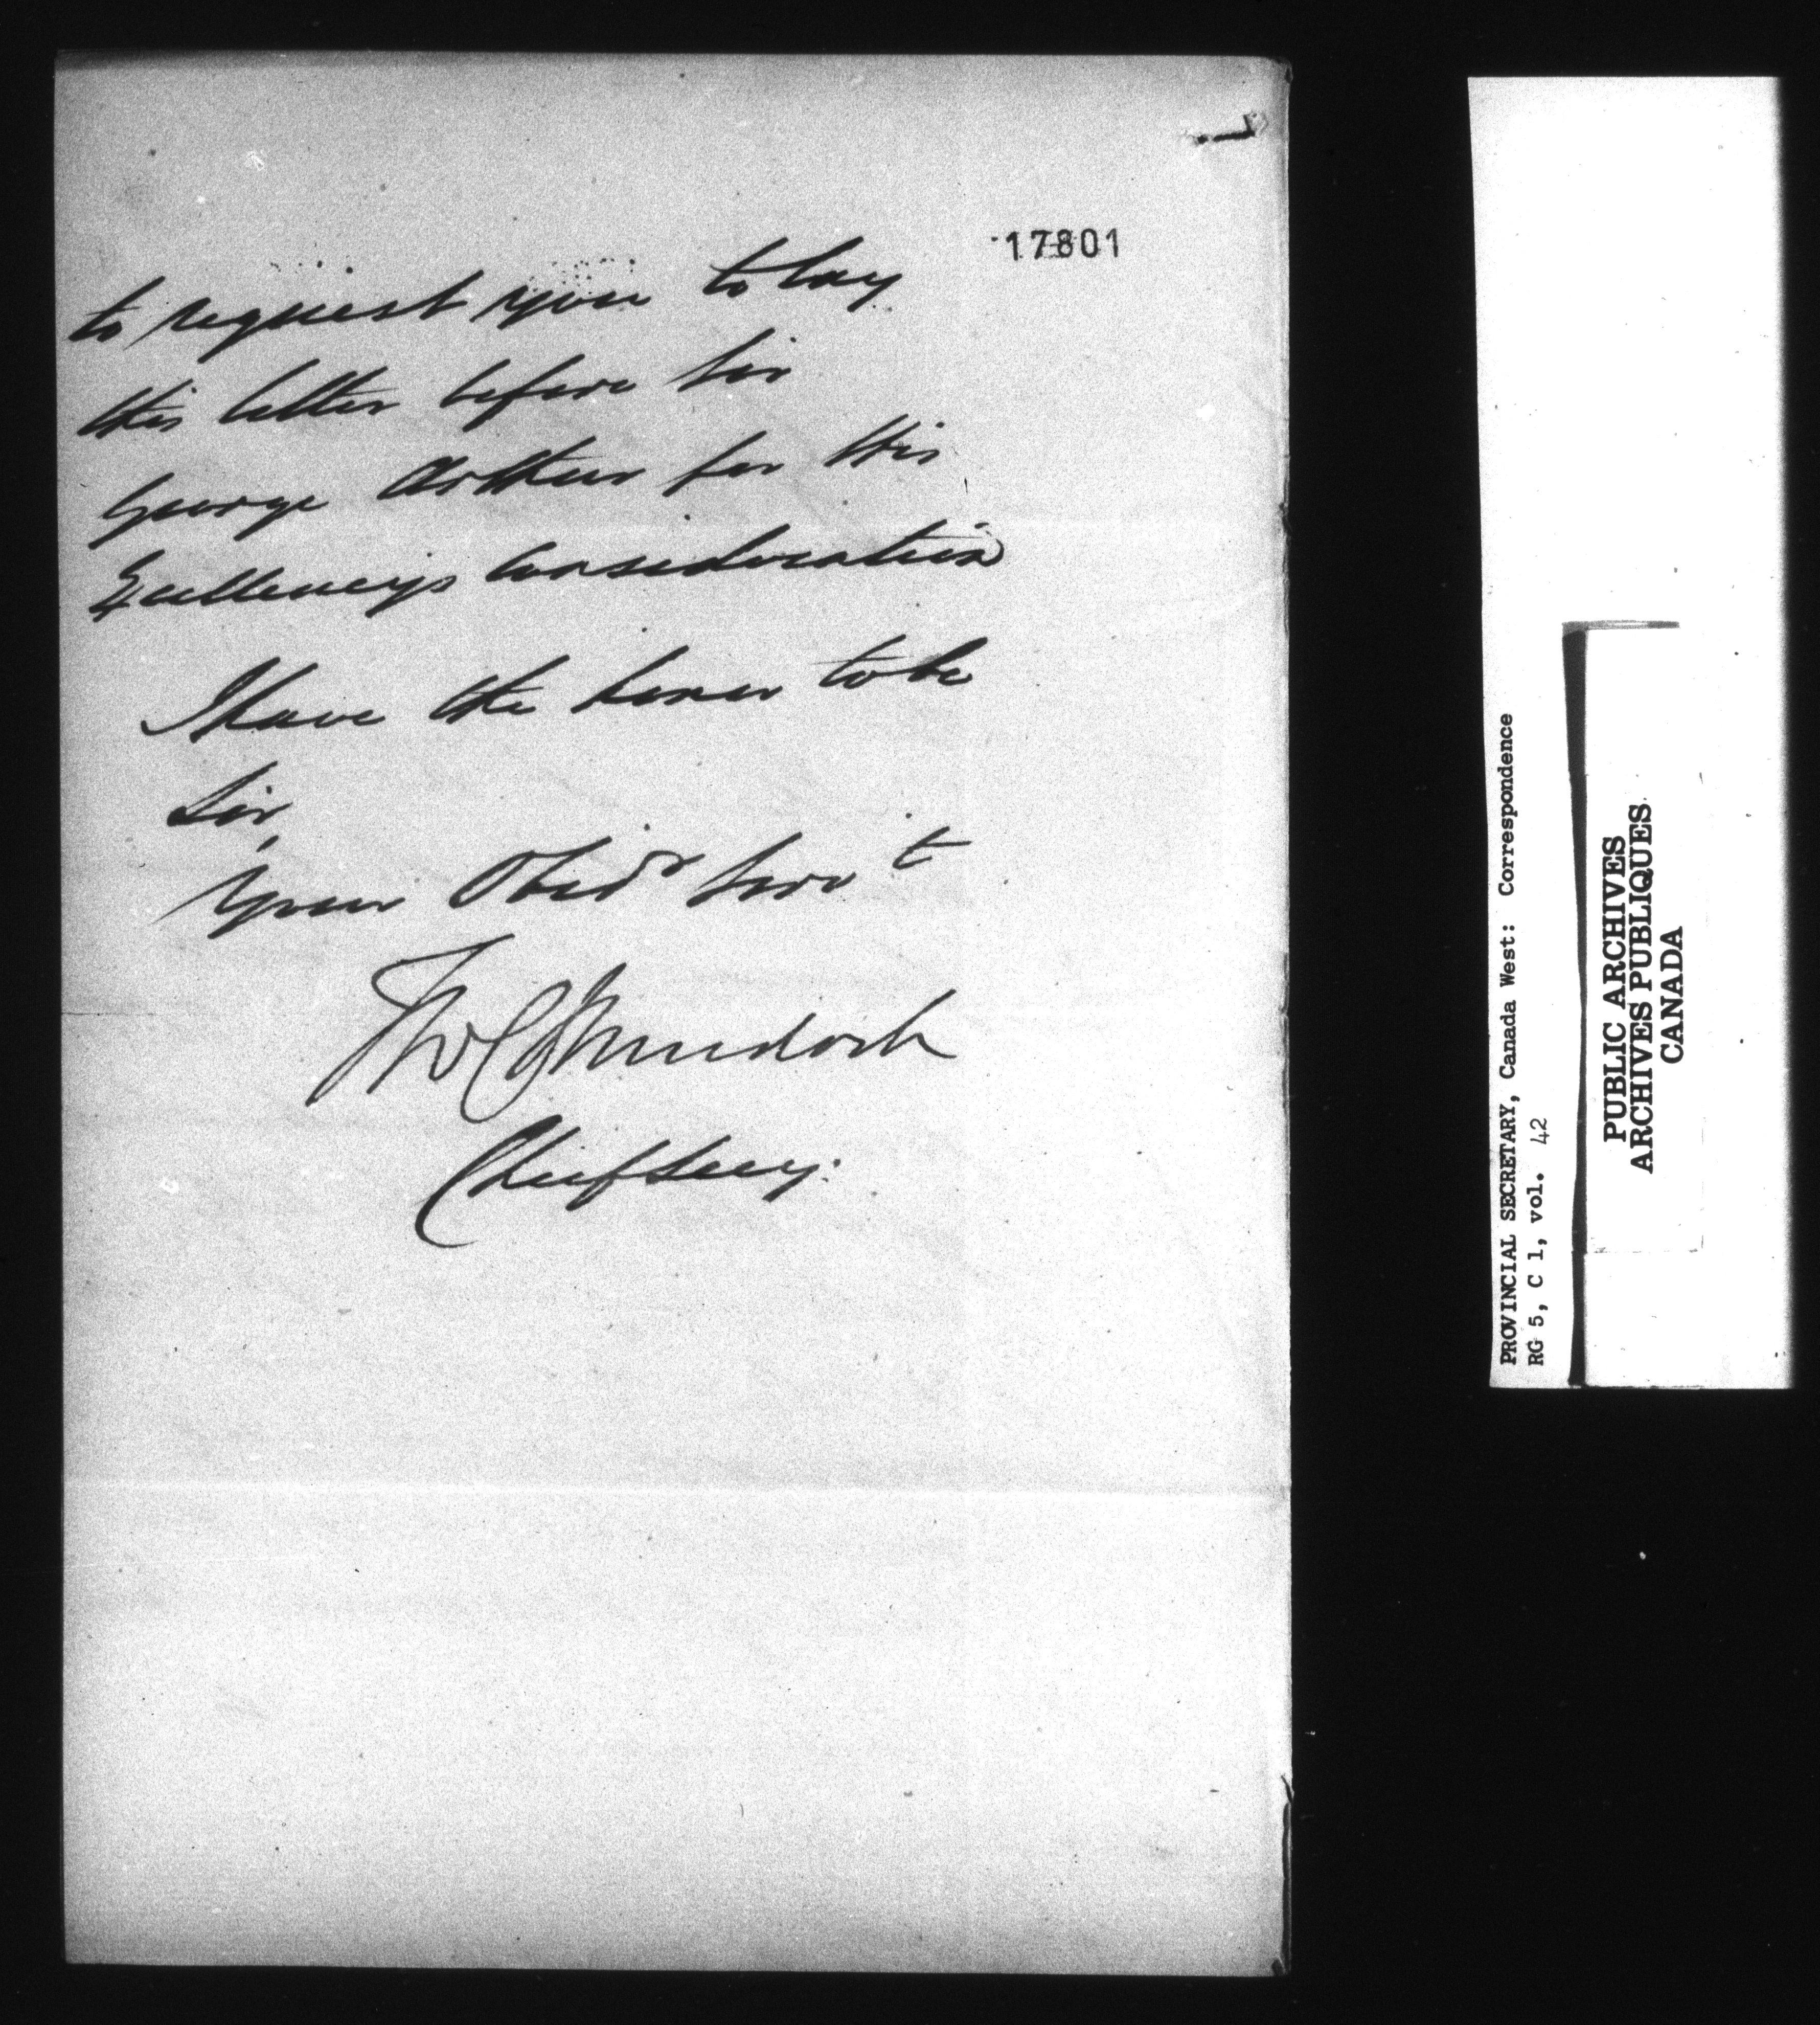 17801
to request you to lay
this letter before Sir
George Arthur for His
Excellency's consideration
I have the honor to be
Sir,
Your Obed^t Serv^t
Tho C Murdoch
Chief Secy.
PROVINCIAL SECRETARY, Canada West: Correspondence
RG 5, C 1, vol. 42
PUBLIC ARCHIVES
ARCHIVES PUBLIQUES
CANADA